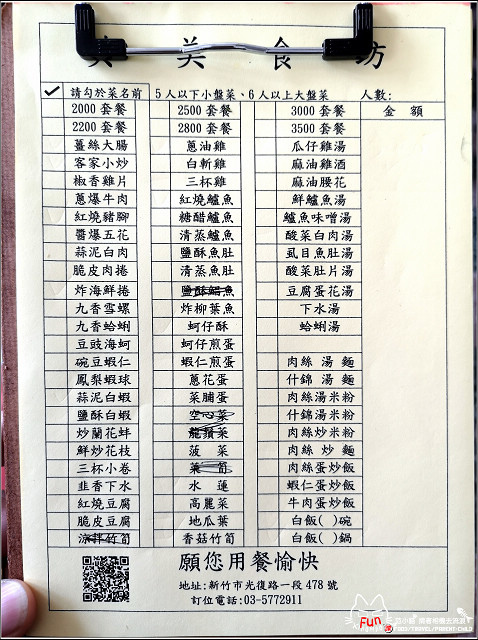 真美食坊
✓ 請勾於菜名前 5人以下小盤菜、6人以上大盤菜 人數:
2000 套餐 2500 套餐 3000 套餐 金額
2200 套餐 2800 套餐 3500 套餐
薑絲大腸 蔥油雞 瓜仔雞湯
客家小炒 白斬雞 麻油雞酒
椒香雞片 三杯雞 麻油腰花
蔥爆牛肉 紅燒鱸魚 鮮鱸魚湯
紅燒豬腳 糖醋鱸魚 鱸魚味噌湯
醬爆五花 清蒸鱸魚 酸菜白肉湯
蒜泥白肉 鹽酥魚肚 虱目魚肚湯
脆皮肉捲 清蒸魚肚 酸菜肚片湯
炸海鮮捲 鹽酥鯧魚 豆腐蛋花湯
九香雪螺 炸柳葉魚 下水湯
九香蛤蜊 蚵仔酥 蛤蜊湯
豆豉海蚵 蚵仔煎蛋
碗豆蝦仁 蝦仁煎蛋 肉絲 湯 麵
鳳梨蝦球 蔥花蛋 什錦 湯 麵
蒜泥白蝦 菜脯蛋 肉絲湯米粉
鹽酥白蝦 空心菜 什錦湯米粉
炒蘭花蚌 龍鬚菜 肉絲炒米粉
鮮炒花枝 菠菜 肉絲 炒 麵
三杯小卷 茭筍 肉絲蛋炒飯
韭香下水 水蓮 蝦仁蛋炒飯
紅燒豆腐 高麗菜 牛肉蛋炒飯
脆皮豆腐 地瓜葉 白飯( )碗
涼拌竹筍 香菇竹筍 白飯( )鍋
願您用餐愉快
地址:新竹市光復路一段 478 號
訂位電話:03-5772911
Fun